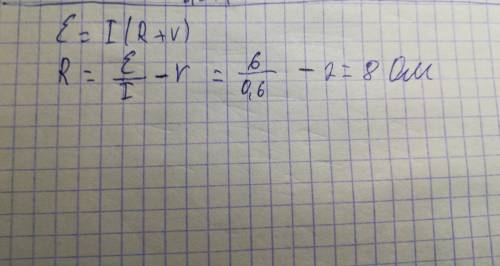 ℰ = I(R+r)
R = ℰ/I - r = 6/0,6 - 2 = 8 Ом